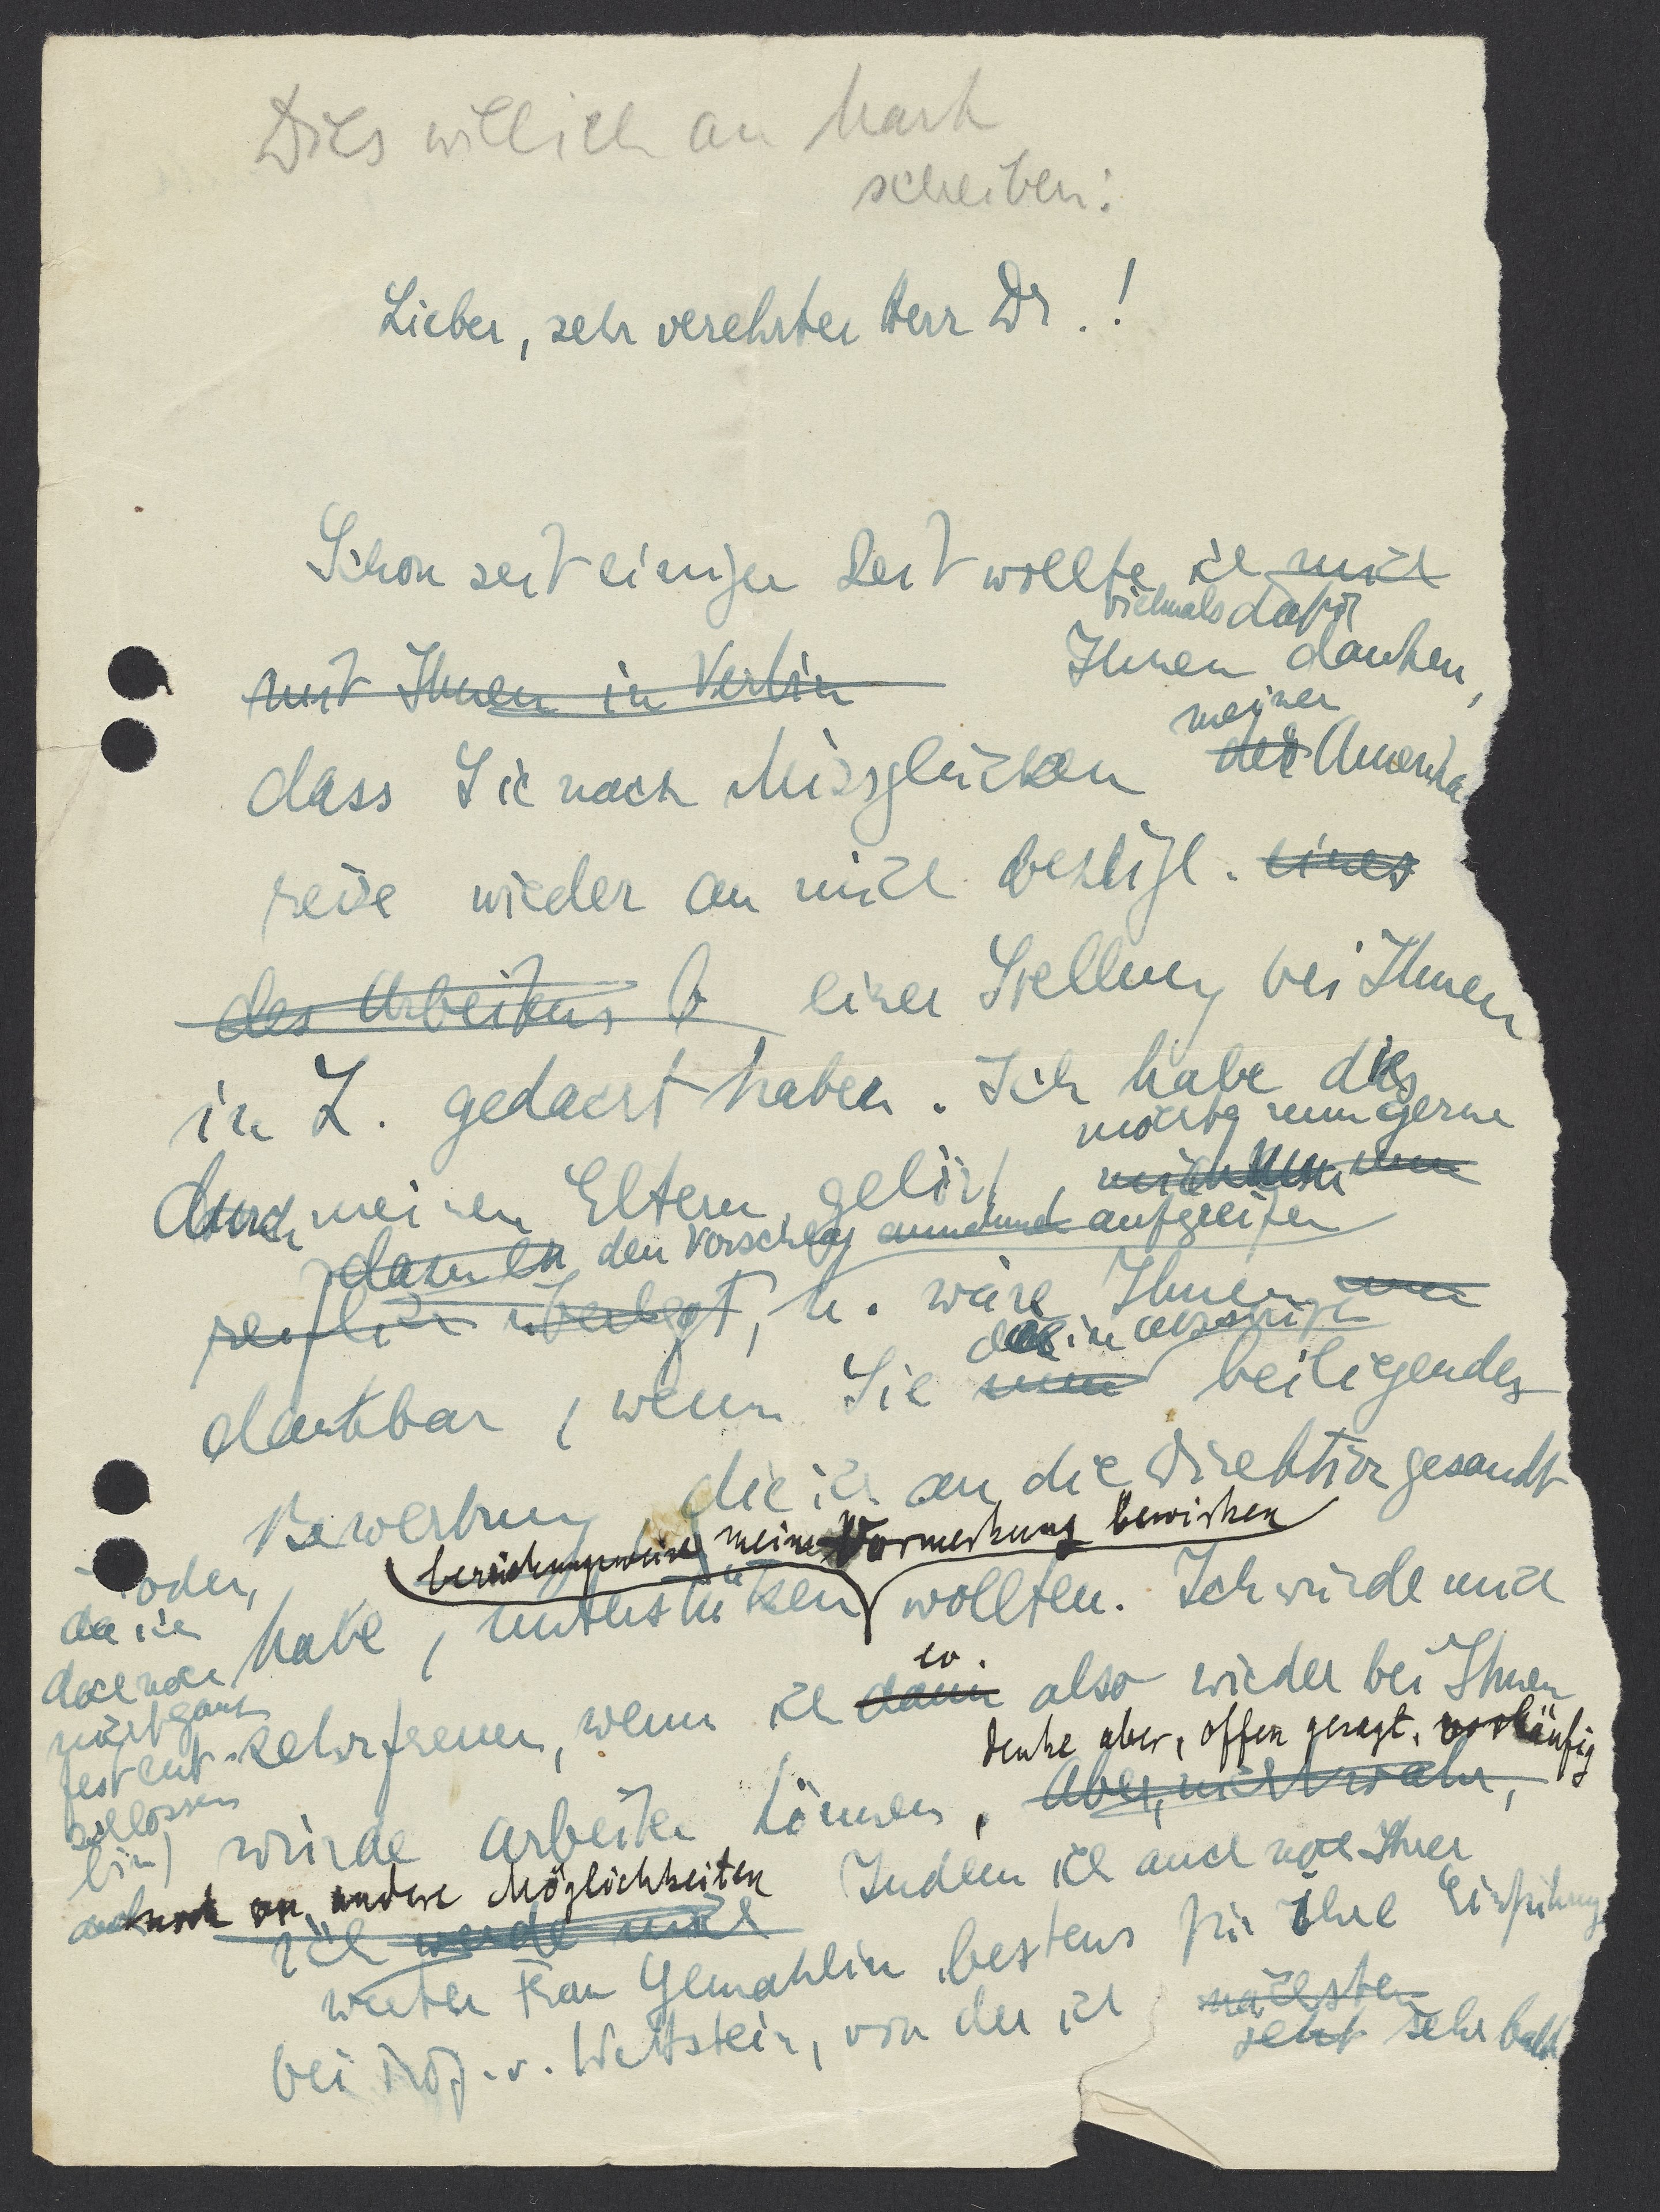 Dies will ich an Mark
schreiben:
Lieber, sehr verehrter Herr Dr. !
Schon seit einiger Zeit wollte ich mich
vielmals dafür
mit Ihnen in Verbin Ihnen danken,
meiner
dass Sie nach Missglücken der Amerika
reise wieder an mich bezügl. eines
des Arbeitens b einer Stellung bei Ihnen
in L. gedacht haben. Ich habe dies
möchte nun gerne
durch meinen Eltern gehört, nun
den Vorschlag annehmend aufgreifen
reiflich überlegt, u. wäre Ihnen nun
dankbar, wenn Sie nun beiliegendes
Bewerbung, die ich an die Direktion gesandt
beziehungsweise meine Vormerkung bewirken
habe, unterstützen wollten. Ich würde mich
so
sehr freuen, wenn ich dann also wieder bei Ihnen
denke aber, offen gesagt, vorläufig
würde arbeiten können. Aber, nicht wahr,
oder,
da ich
doch noch
nicht ganz
fest ent-
schlossen
bin)
auch noch an andere Möglichkeiten
ich werde mich Indem ich auch noch Ihrer
werten Frau Gemahlin bestens für Ihre Einführung
bei Prof. v. Wettstein, von der ich nächsten
sehr bald